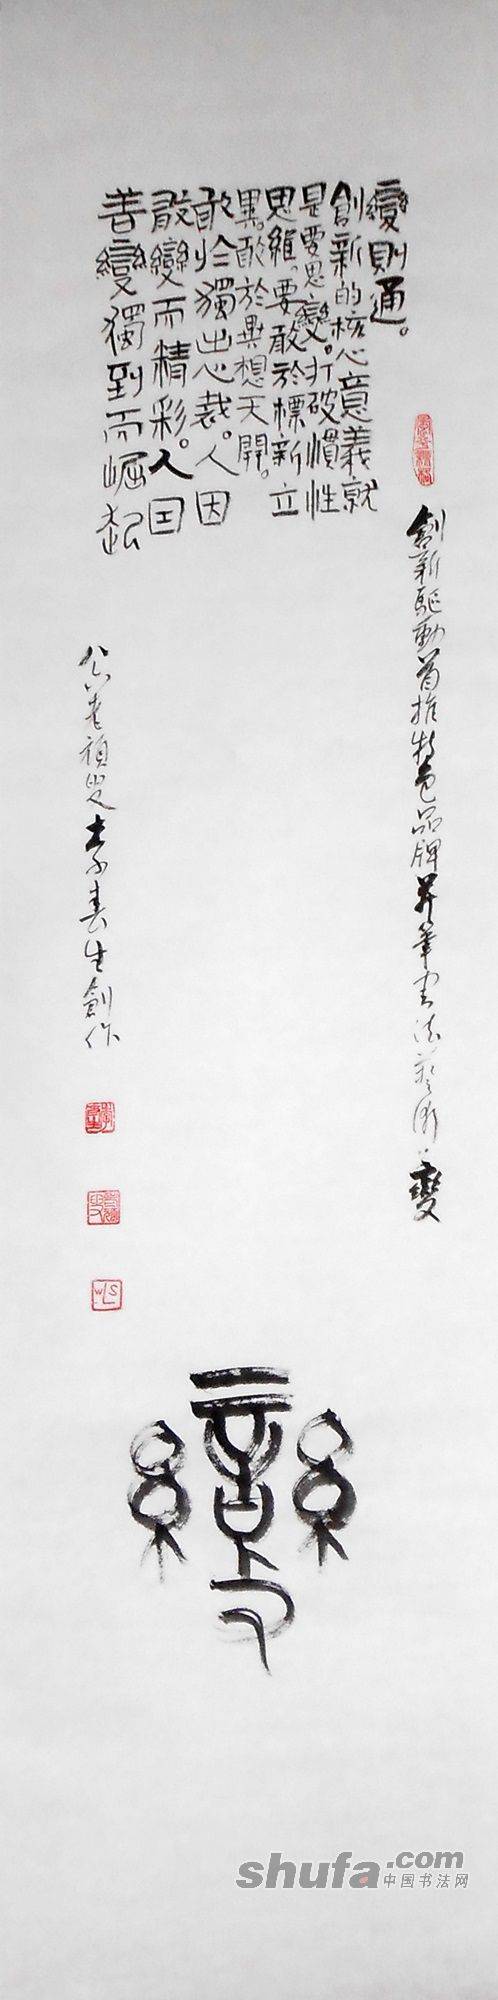 變則通。
創新的核心意義就
是要思變。打破慣性
思維。要敢於標新立
異。敢於異想天開。
敢於獨出心裁。人因
敢變而精彩。人因
善變獨到而崛起
創新驅動首推特色品牌并筆書法藝術變
老頑童李春生創作
變
shufa.com
中国书法网